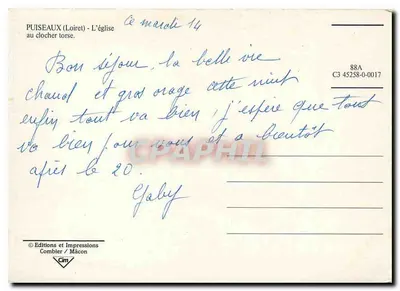 PUISEAUX (Loiret) - L'église
au clocher torse.
Ce mardi 14
88A
C3 45258-0-0017
Bon séjour, la belle vie
chaud et gros orage cette nuit
enfin tout va bien, j'espère que tout
va bien pour vous et a bientôt
après le 20.
Gaby
CPAPHIL
© Editions et Impressions
Combier / Mâcon
Cim